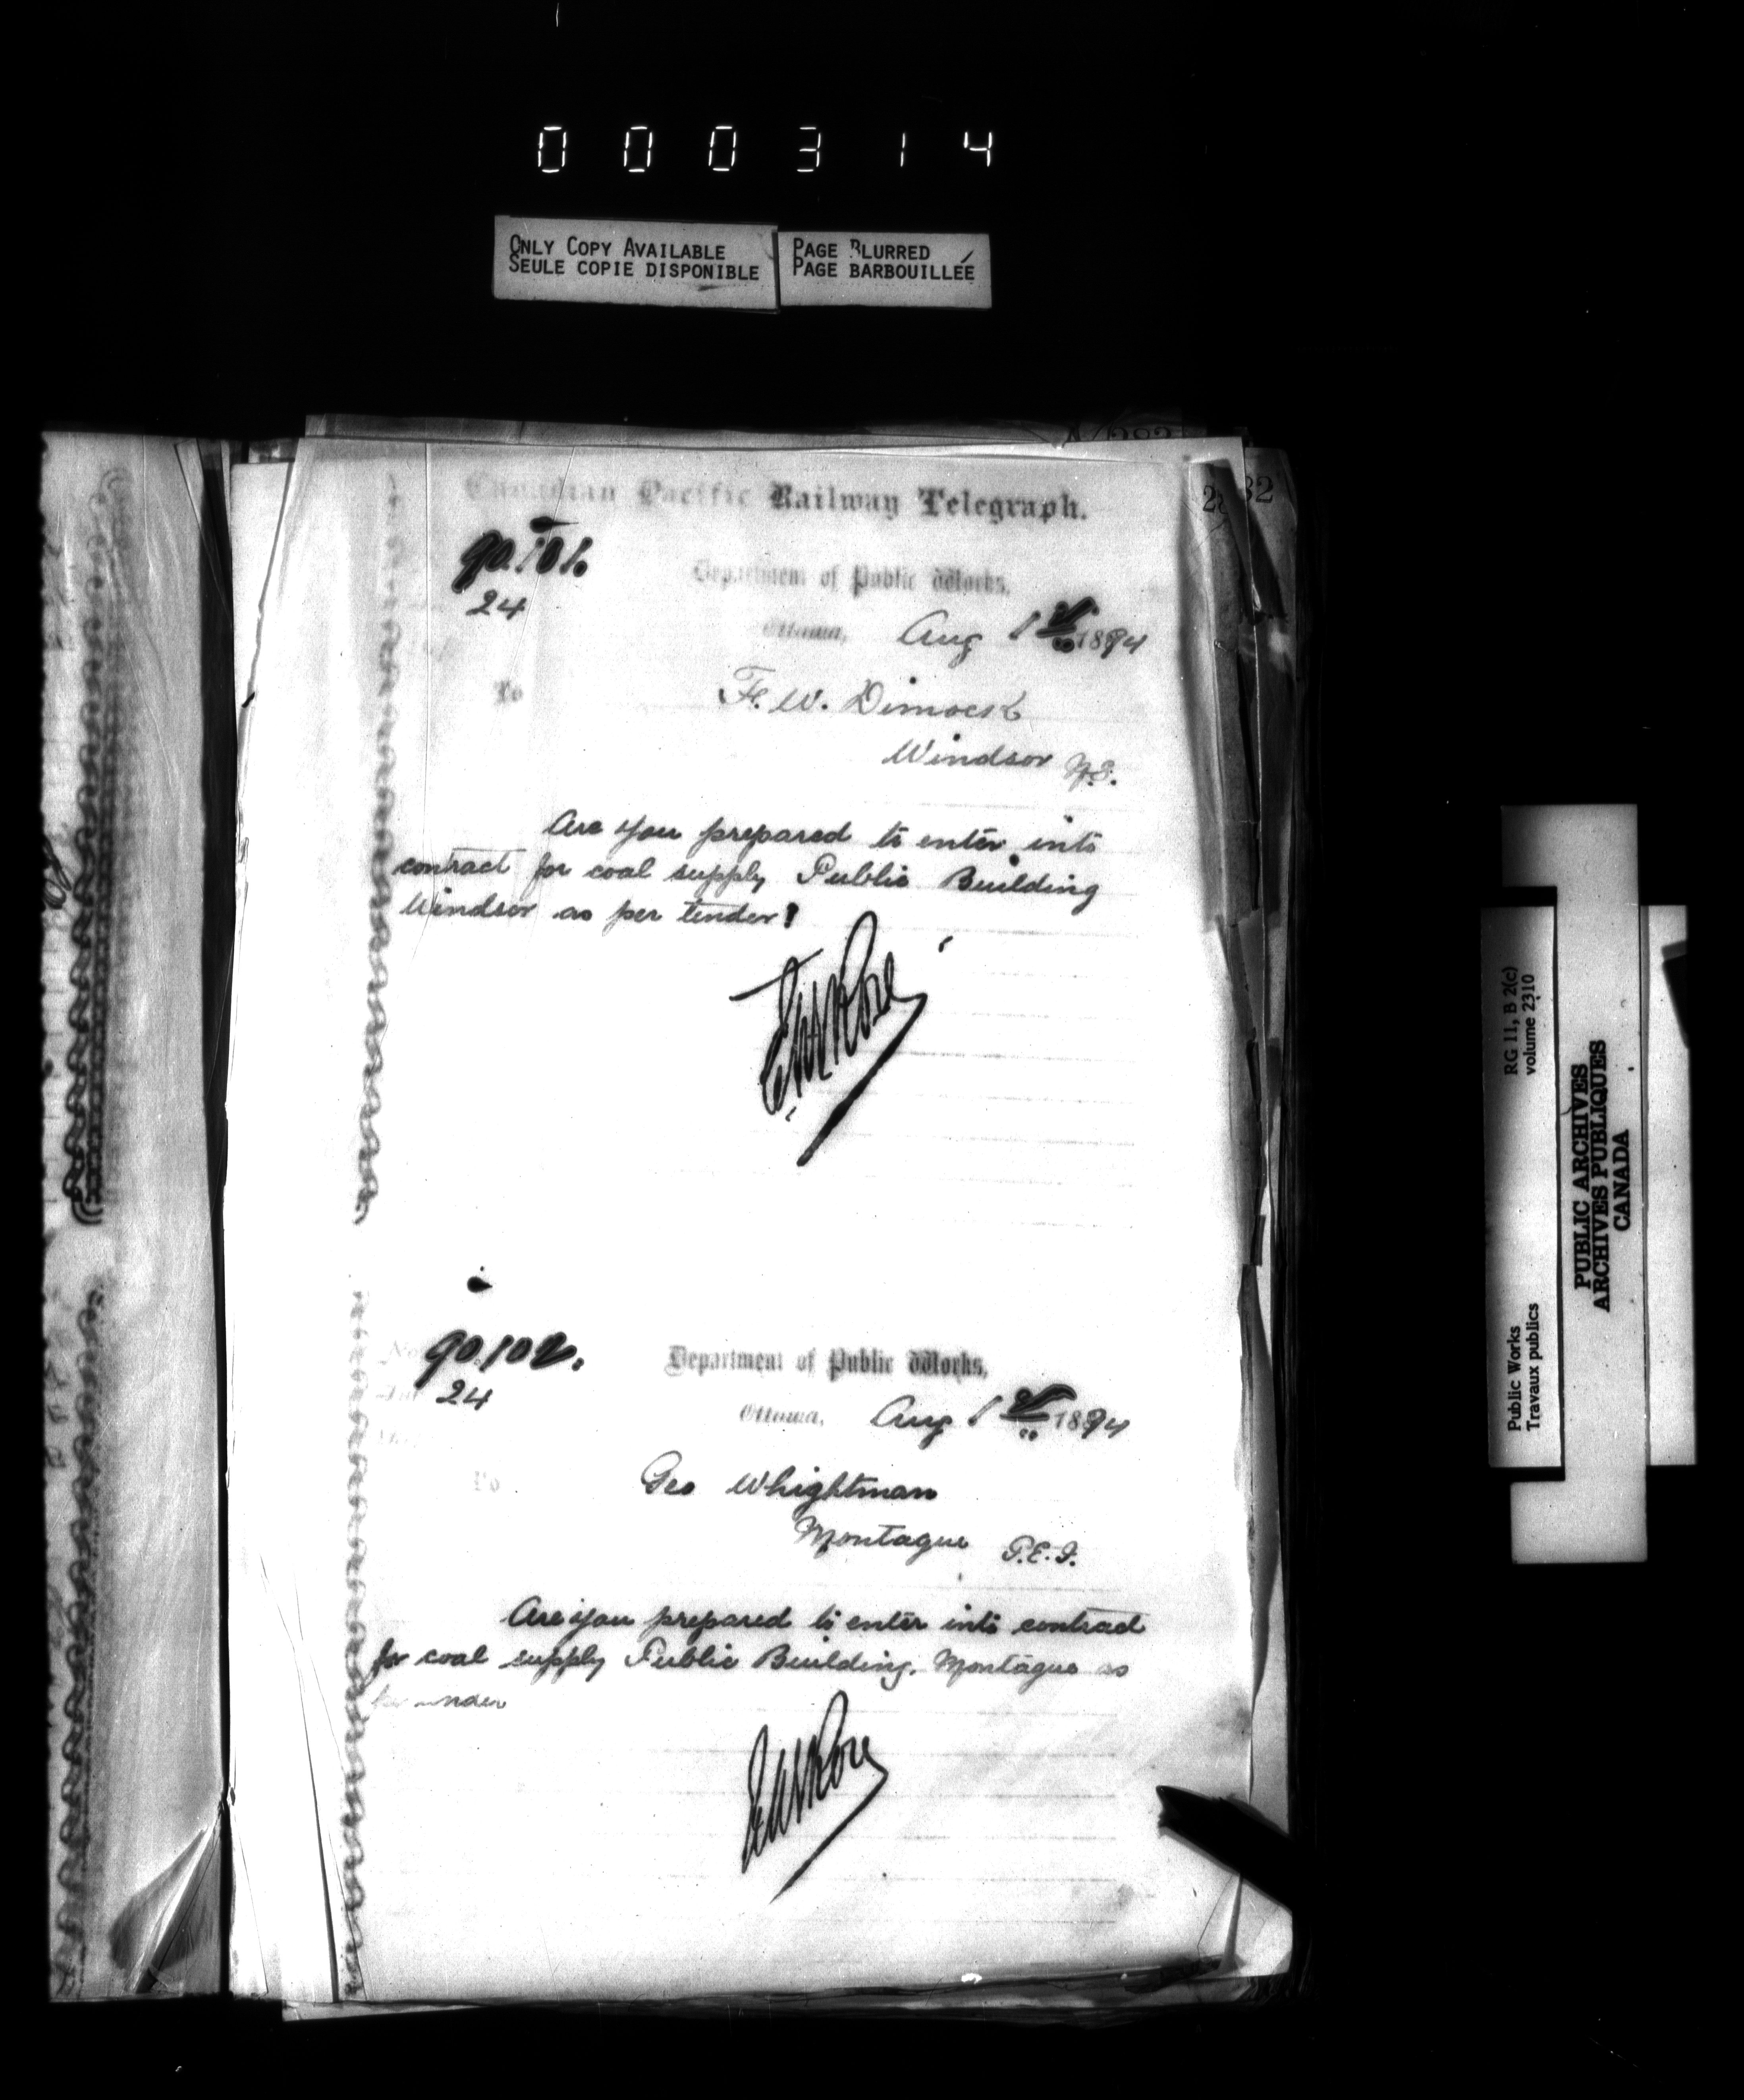 000314
ONLY COPY AVAILABLE
SEULE COPIE DISPONIBLE
PAGE BLURRED
PAGE BARBOUILLÉE
Canadian Pacific Railway Telegraph.
90.101.
24
Department of Public Works,
Ottawa, Aug 1st 1894
To F. W. Dimock
Windsor N.S.
Are you prepared to enter into
contract for coal supply Public Building
Windsor as per tender?
90.102.
24
Department of Public Works,
Ottawa, Aug 1st 1894
To Geo Whightman
Montague P.E.I.
Are you prepared to enter into contract
for coal supply Public Building. Montague as
RG 11, B 2(c)
volume 2310
Public Works
Travaux publics
PUBLIC ARCHIVES
ARCHIVES PUBLIQUES
CANADA